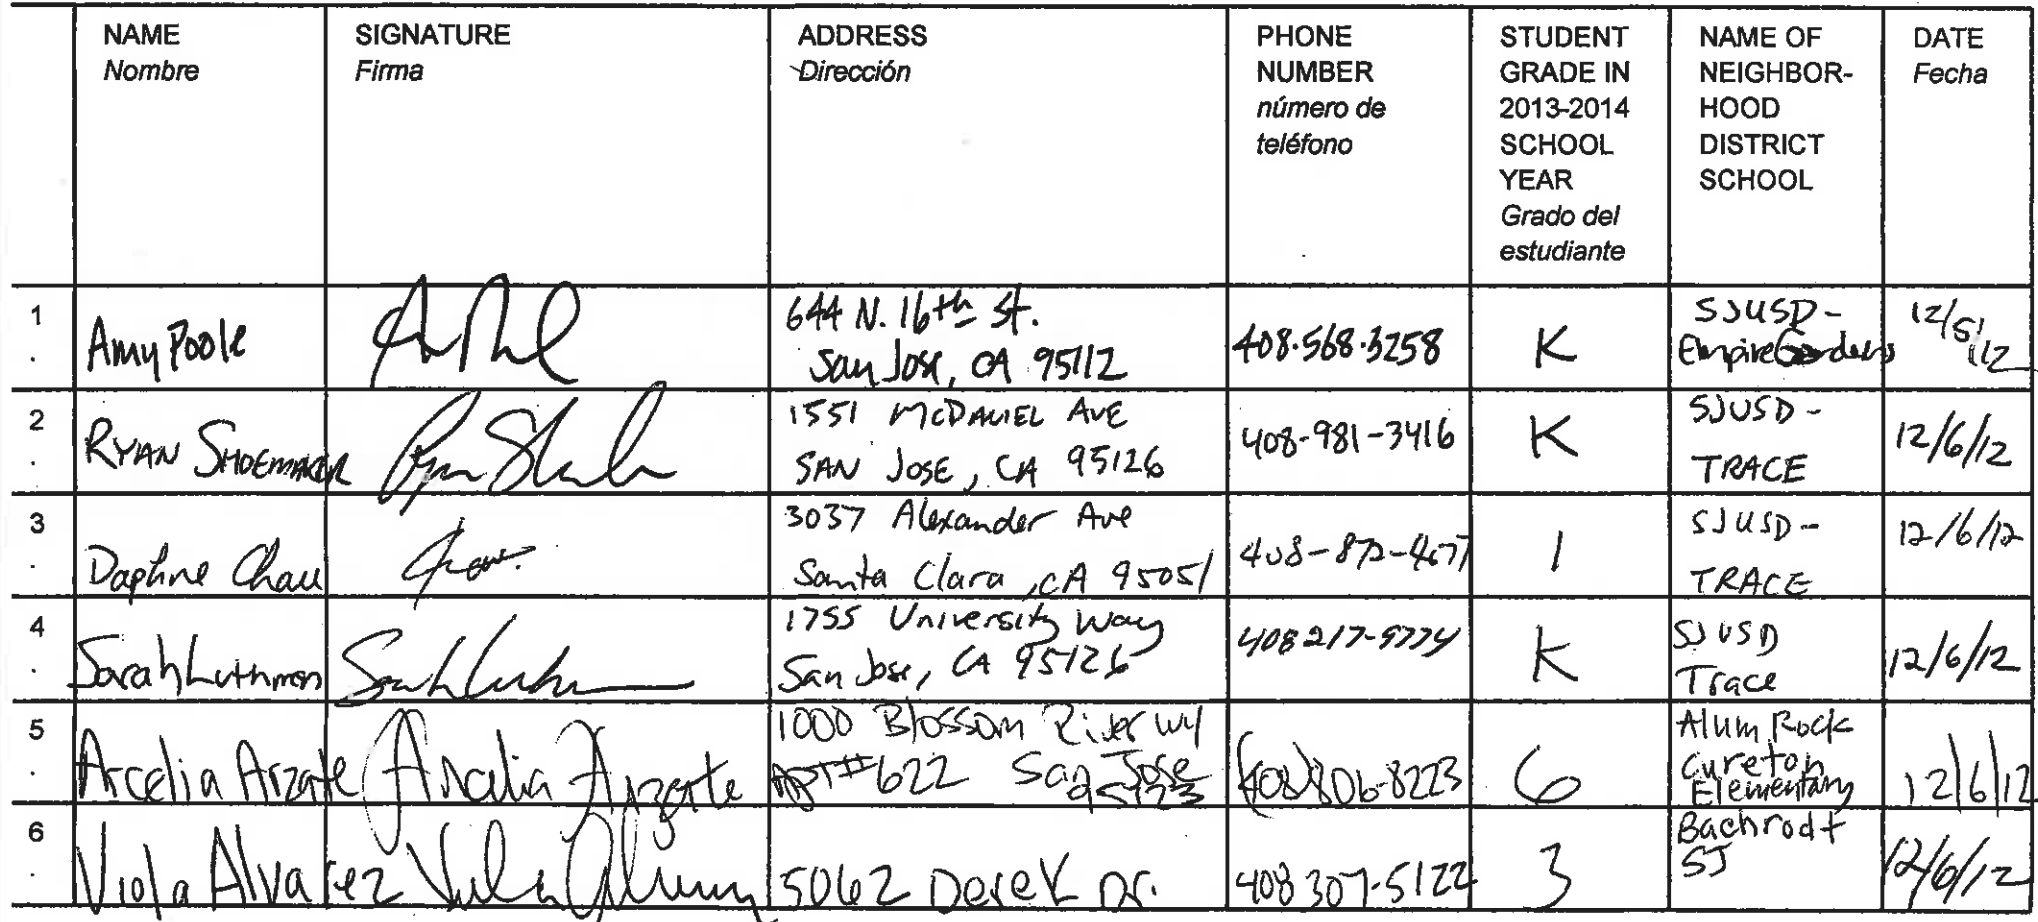 NAME
Nombre
SIGNATURE
Firma
ADDRESS
Dirección
PHONE
NUMBER
número de
teléfono
STUDENT
GRADE IN
2013-2014
SCHOOL
YEAR
Grado del
estudiante
NAME OF
NEIGHBOR-
HOOD
DISTRICT
SCHOOL
DATE
Fecha
1
.
Amy Poole
644 N. 16th St.
San Jose, CA 95112
408.568.3258
K
SJUSD-
Empire Gardens
12/5/12
2
.
RYAN SHOEMAKER
1551 McDANIEL AVE
SAN JOSE, CA 95126
408-981-3416
K
SJUSD-
TRACE
12/6/12
3
.
Daphne Chau
3037 Alexander Ave
Santa Clara, CA 95051
1
SJUSD-
TRACE
12/6/12
4
.
Sarah Luthman
1755 University Way
San Jose, CA 95126
408 217-9774
K
SJUSD
Trace
12/6/12
5
.
Arcelia Arzate
Arcelia Arzate
1000 Blossom River Wy
APT#622 San Jose
95123
(408)806-8223
6
Alum Rock
Cureton
Elementary
12/6/12
6
.
Viola Alvarez
5062 Derek Dr.
408 307-5122
3
Bachrodt
SJ
12/6/12